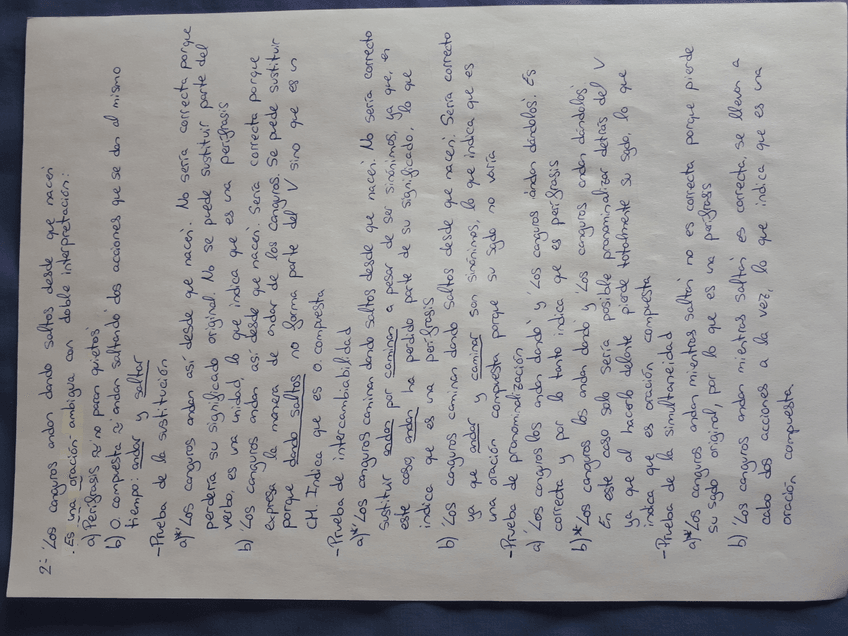 2- 'Los canguros andan dando saltos desde que nacen'
. Es una oración ambigua con doble interpretación:
a) Perífrasis ≈ 'no paran quietos'
b) O. compuesta ≈ 'andan saltando' dos acciones que se dan al mismo
tiempo: andar y saltar
- Prueba de la sustitución
a)* 'Los canguros andan así desde que nacen'. No sería correcta porque
perdería su significado original. No se puede sustituir parte del
verbo, es una unidad, lo que indica que es una perífrasis
b) 'Los canguros andan así desde que nacen'. Sería correcta porque
expresa la manera de andar de los canguros. Se puede sustituir
porque dando saltos no forma parte del V sino que es un
CM. Indica que es O. compuesta
- Prueba de intercambiabilidad
a)* 'Los canguros caminan dando saltos desde que nacen'. No sería correcto
sustituir andan por caminan a pesar de ser sinónimos, ya que, en
este caso, andan ha perdido parte de su significado, lo que
indica que es una perífrasis
b) 'Los canguros caminan dando saltos desde que nacen'. Sería correcto
ya que andar y caminar son sinónimos, lo que indica que es
una oración compuesta porque su sgdo no varía
- Prueba de pronominalización
a) 'Los canguros los andan dando' y 'Los canguros andan dándolos'. Es
correcta y por lo tanto indica que es perífrasis
b)* 'Los canguros los andan dando' y 'Los canguros andan dándolos'
En este caso solo sería posible pronominalizar detrás del V
ya que al hacerlo delante pierde totalmente su sgdo, lo que
indica que es oración compuesta
- Prueba de la simultaneidad
a)* 'Los canguros andan mientras saltan' no es correcta porque pierde
su sgdo original, por lo que es una perífrasis
b) 'Los canguros andan mientras saltan' es correcta, se llevan a
cabo dos acciones a la vez, lo que indica que es una
oración compuesta